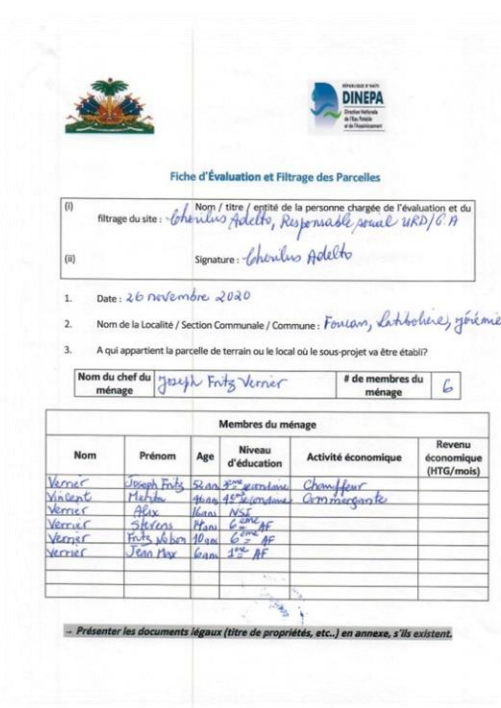 RÉPUBLIQUE D'HAÏTI
DINEPA
Direction Nationale
de l'Eau Potable
et de l'Assainissement
Fiche d'Évaluation et Filtrage des Parcelles
(i) Nom / titre / entité de la personne chargée de l'évaluation et du
filtrage du site : Cherilus Adelto, Responsable social URD/G.A
(ii) Signature : Cherilus Adelto
1. Date : 26 novembre 2020
2. Nom de la Localité / Section Communale / Commune : Foucan, Latibolière, Jérémie
3. A qui appartient la parcelle de terrain ou le local où le sous-projet va être établi?
Nom du chef du ménage Joseph Fritz Vernier # de membres du ménage 6
Membres du ménage
Nom Prénom Age Niveau d'éducation Activité économique Revenu économique (HTG/mois)
Vernier Joseph Fritz 52 ans 3ème secondaire Chauffeur
Vincent 46 ans secondaire Commerçante
Vernier Alix 16 ans NSI
Vernier Stevens 14 ans 6ème AF
Vernier Fritz 10 ans 6ème AF
Vernier Jean Max 6 ans 1ère AF
→ Présenter les documents légaux (titre de propriétés, etc..) en annexe, s'ils existent.